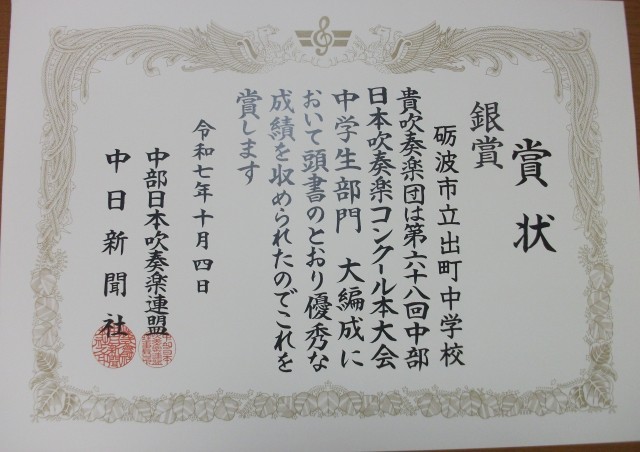 賞状
銀賞
砺波市立出町中学校
貴吹奏楽団は第六十八回中部
日本吹奏楽コンクール本大会
中学生部門 大編成に
おいて頭書のとおり優秀な
成績を収められたのでこれを
賞します
令和七年十月四日
中部日本吹奏楽連盟
中日新聞社